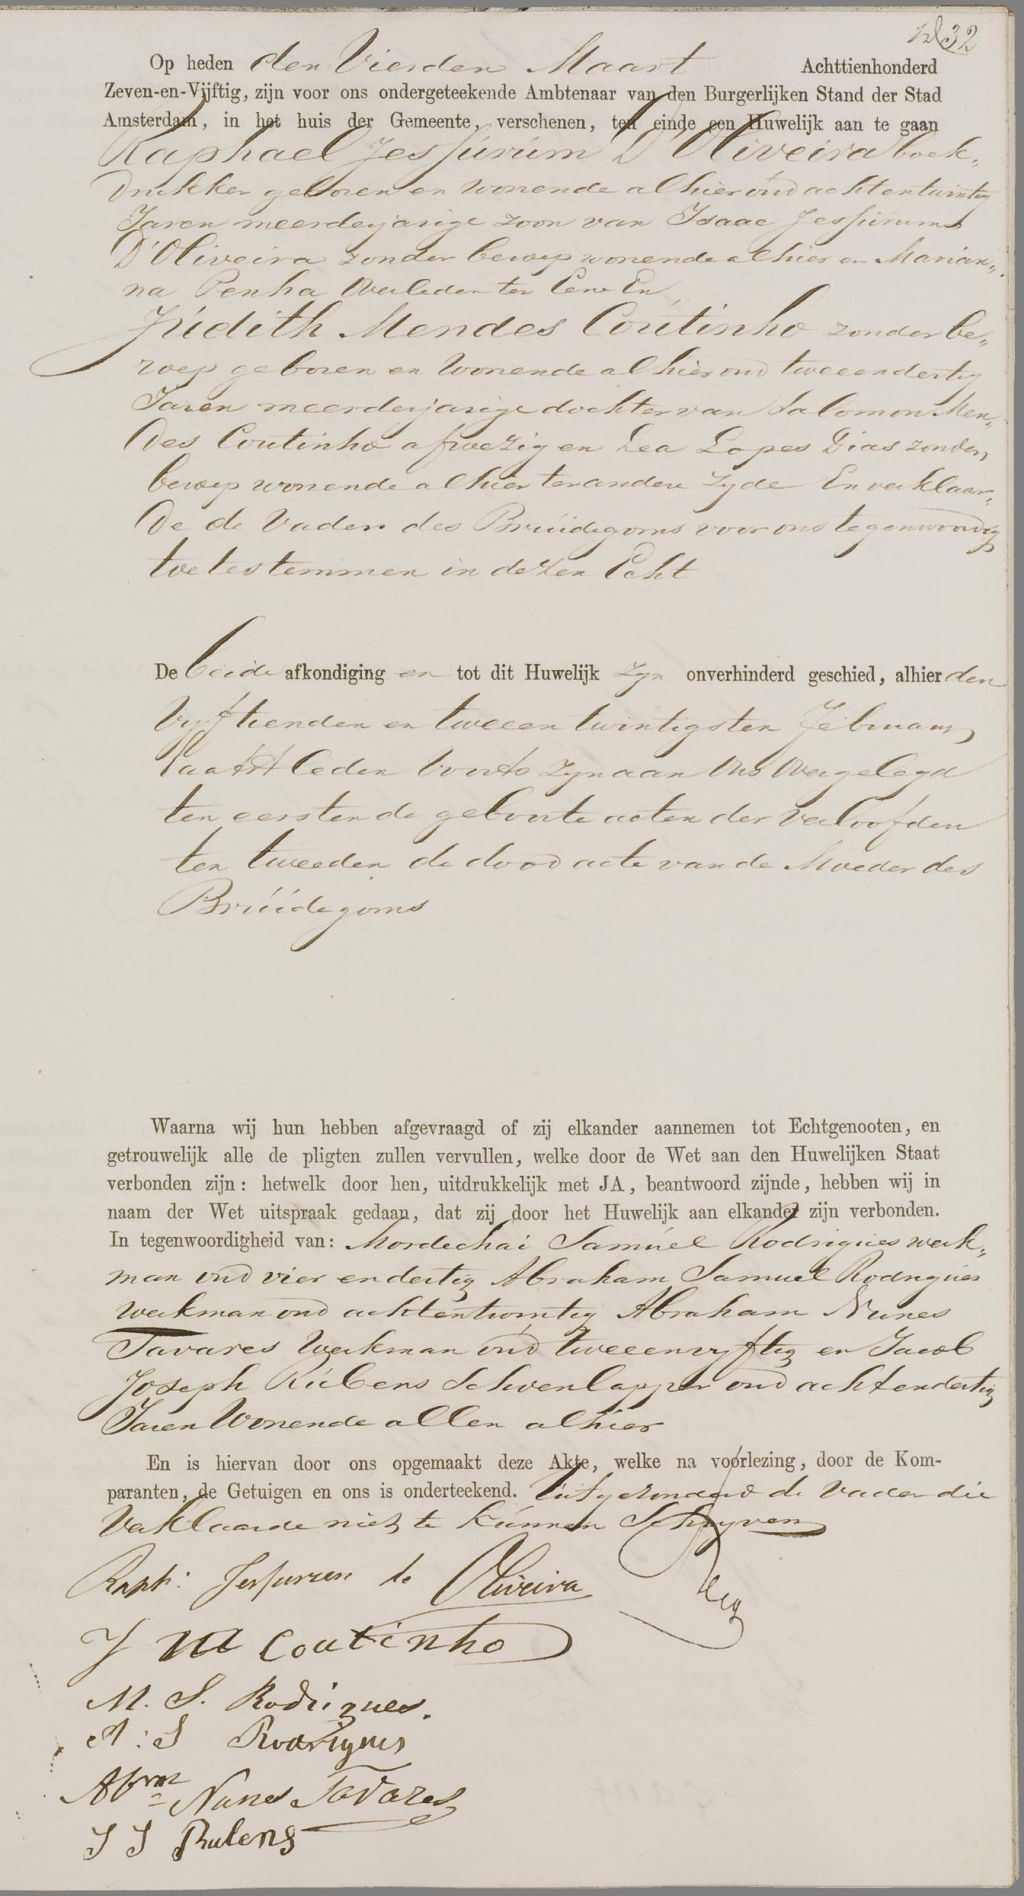 32
Op heden den Vierden Maart Achttienhonderd
Zeven-en-Vijftig, zijn voor ons ondergeteekende Ambtenaar van den Burgerlijken Stand der Stad
Amsterdam, in het huis der Gemeente, verschenen, ten einde een Huwelijk aan te gaan
Raphael Jessurum D'Oliveira boek„
drukker geboren en wonende alhier oud achtentwintig
Jaren meerderjarige zoon van Isaac Jessurum
D'Oliveira zonder beroep wonende alhier en Marian„
na Penha Overleden ter Eene En
Judith Mendes Coutinho zonder be„
roep geboren en Wonende alhier oud tweeendertig
Jaren meerderjarige dochter van Salomon Men„
des Coutinho afwezig en Lea Lopes Dias zonder
beroep wonende alhier ter andere zyde En verklaar„
de de Vader des Bruidegoms voor ons tegenwoordig
toe te stemmen in dezen Echt
De beide afkondiging en tot dit Huwelijk zyn onverhinderd geschied, alhier den
Vyftienden en tweeentwintigsten Februarij
laatstleden Voorts zyn aan Ons Overgelegd
ten eersten de geboorte acten der Verloofden
ten tweeden de dood acte van de Moeder des
Bruidegoms
Waarna wij hun hebben afgevraagd of zij elkander aannemen tot Echtgenooten, en
getrouwelijk alle de pligten zullen vervullen, welke door de Wet aan den Huwelijken Staat
verbonden zijn: hetwelk door hen, uitdrukkelijk met JA, beantwoord zijnde, hebben wij in
naam der Wet uitspraak gedaan, dat zij door het Huwelijk aan elkander zijn verbonden.
In tegenwoordigheid van: Mordechai Samuel Rodrigues werk„
man oud vier en dertig Abraham Samuel Rodrigues
Werkman oud achtentwintig Abraham Nunes
Tavares Werkman oud tweeenvyftig en Jacob
Joseph Rubens Schoenlapper oud achtendertig
Jaren Wonende allen alhier
En is hiervan door ons opgemaakt deze Akte, welke na voorlezing, door de Kom-
paranten, de Getuigen en ons is onderteekend. Uitgezonderd de Vader die
Verklaarde niet te kunnen Schryven
Raph: Jessurun de Oliveira
J M Coutinho
M. S. Rodrigues.
A: S Rodrigues
Abm Nunes Tavares
J J Rubens